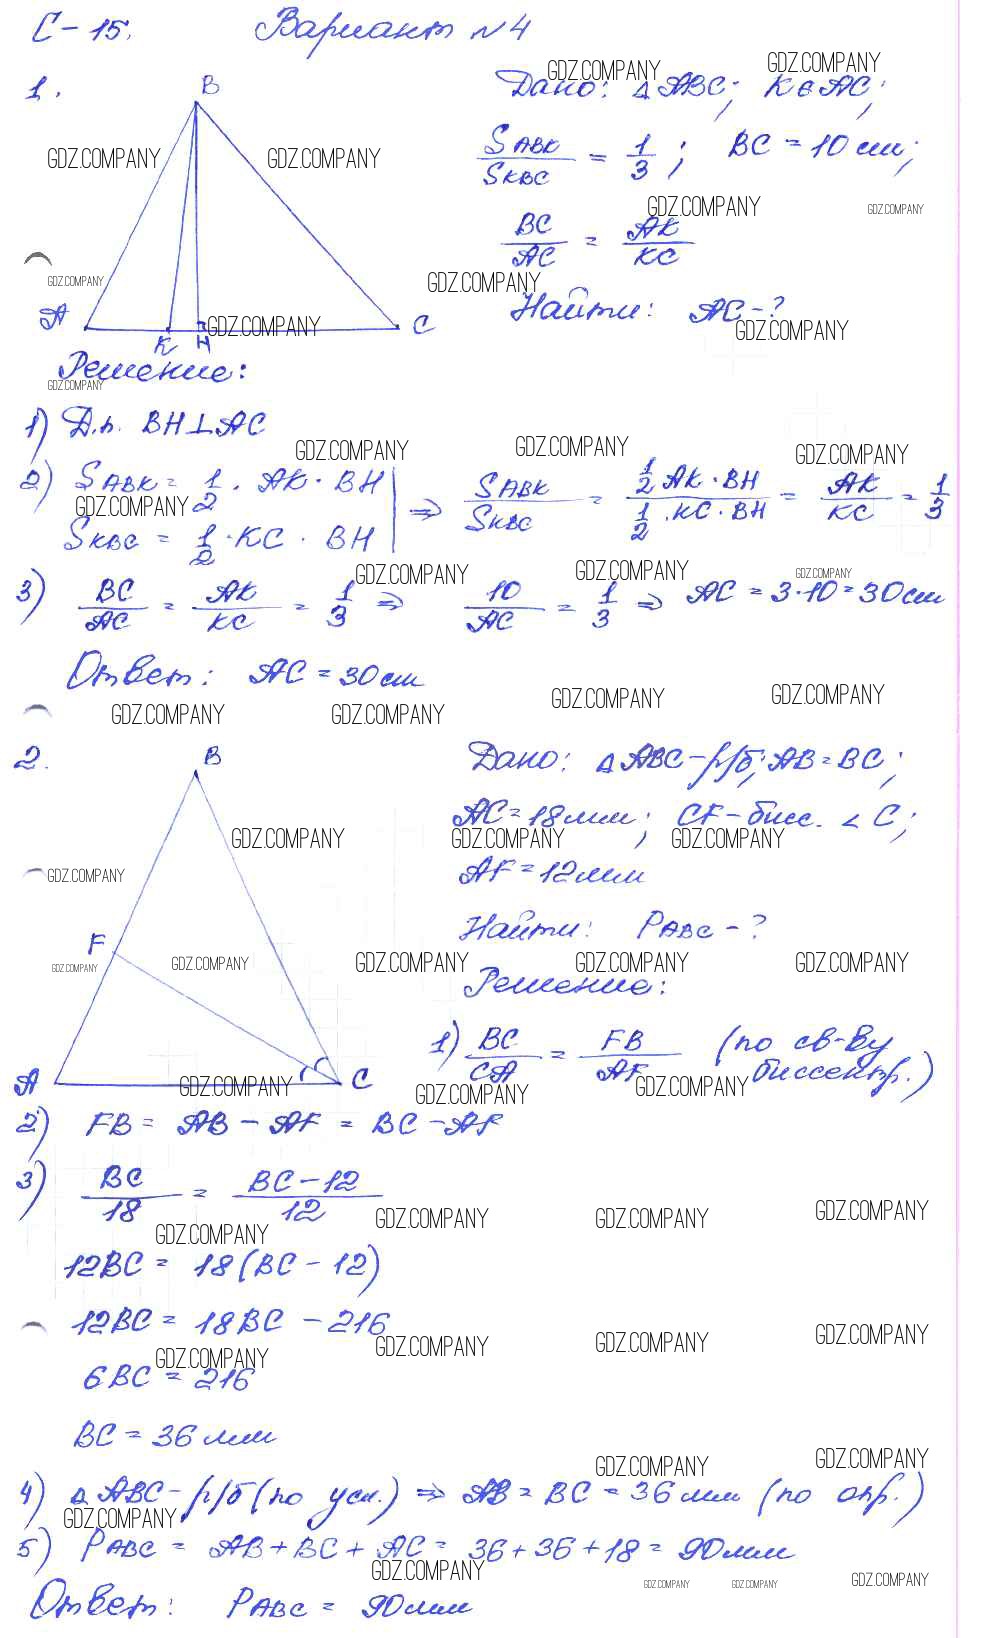 С-15. Вариант №4
1.
B
A K H C
Дано: △ABC; K∈AC;
S_ABK/S_KBC = 1/3; BC = 10 см;
BC/AC = AK/KC
Найти: AC - ?
Решение:
1) Д.п. BH⊥AC
2) S_ABK = 1/2 · AK · BH
S_KBC = 1/2 · KC · BH | ⇒ S_ABK/S_KBC = (1/2 AK · BH)/(1/2 · KC · BH) = AK/KC = 1/3
3) BC/AC = AK/KC = 1/3 ⇒ 10/AC = 1/3 ⇒ AC = 3·10 = 30 см
Ответ: AC = 30 см
2.
B
F
A C
Дано: △ABC - р/б; AB = BC;
AC = 18 мм; CF - бисс. ∠C;
AF = 12 мм
Найти: P_ABC - ?
Решение:
1) BC/CA = FB/AF (по св-ву биссектр.)
2) FB = AB - AF = BC - AF
3) BC/18 = (BC - 12)/12
12BC = 18(BC - 12)
12BC = 18BC - 216
6BC = 216
BC = 36 мм
4) △ABC - р/б (по усл.) ⇒ AB = BC = 36 мм (по опр.)
5) P_ABC = AB + BC + AC = 36 + 36 + 18 = 90 мм
Ответ: P_ABC = 90 мм
GDZ.COMPANY